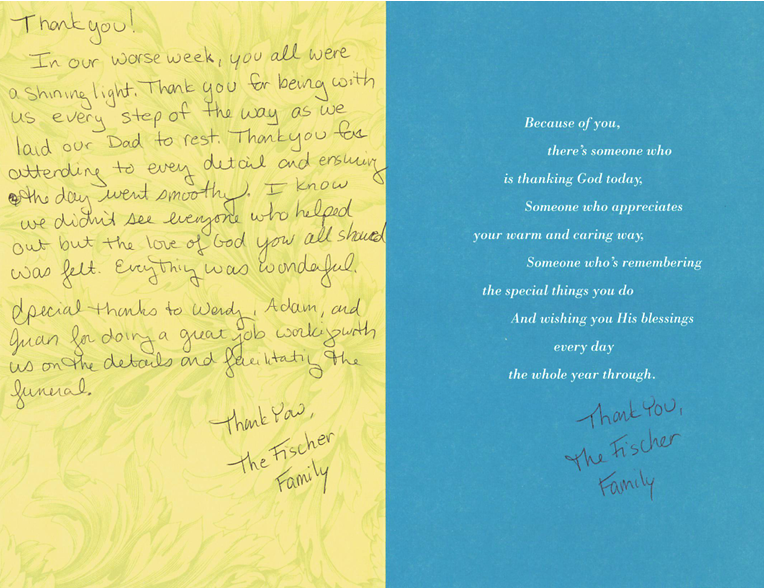 Thank you!
In our worse week, you all were
a shining light. Thank you for being with
us every step of the way as we
laid our Dad to rest. Thank you for
attending to every detail and ensuring
the day went smoothly. I know
we didn't see everyone who helped
out but the love of God you all shared
was felt. Everything was wonderful.
Special thanks to Wendy, Adam, and
Juan for doing a great job working with
us on the details and facilitating the
funeral.
Thank You,
The Fischer
Family
Because of you,
there's someone who
is thanking God today,
Someone who appreciates
your warm and caring way,
Someone who's remembering
the special things you do
And wishing you His blessings
every day
the whole year through.
Thank You,
The Fischer
Family